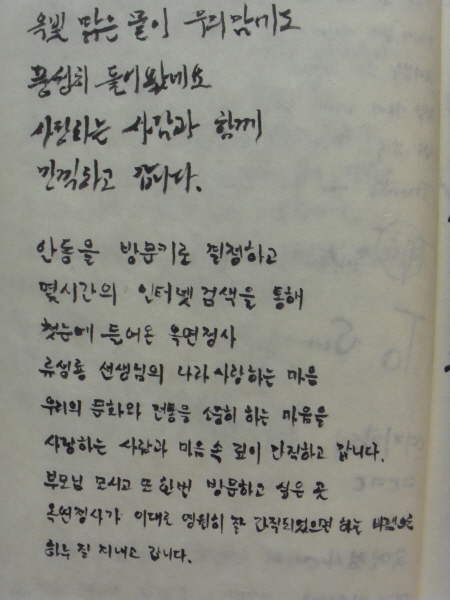 옥빛 맑은 물이 우리맘에도
풍성히 들어왔네요
사랑하는 사람과 함께
만끽하고 갑니다.
안동을 방문키로 결정하고
몇시간의 인터넷 검색을 통해
첫눈에 들어온 옥연정사
류성룡 선생님의 나라사랑하는 마음
우리의 문화와 전통을 소중히 하는 마음을
사랑하는 사람과 마음 속 깊이 간직하고 갑니다.
부모님 모시고 또 한번 방문하고 싶은 곳
옥연정사가 이대로 영원히 잘 간직되었으면 하는 바램으로
하루 잘 지내고 갑니다.
To Su